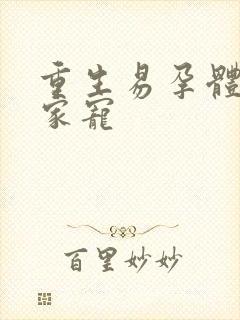 重生易孕體
家寵
百里妙妙